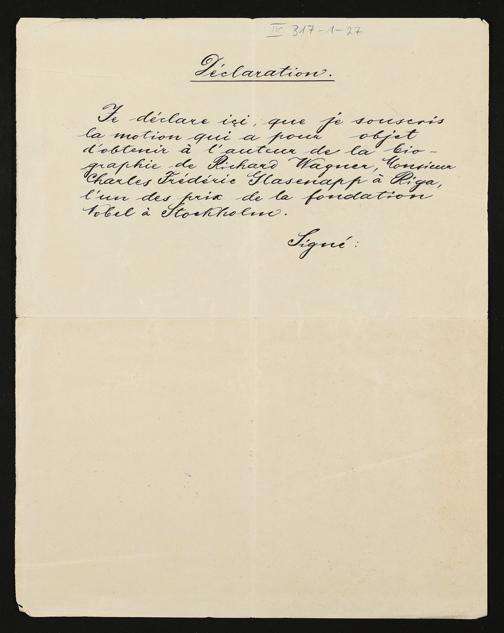 IV 317-1-27
Déclaration.
Je déclare ici, que je souscris
la motion qui a pour objet
d'obtenir à l'auteur de la bio-
graphie de Richard Wagner, Monsieur
Charles Frédéric Glasenapp à Riga,
l'un des prix de la fondation
Nobel à Stockholm.
Signé: